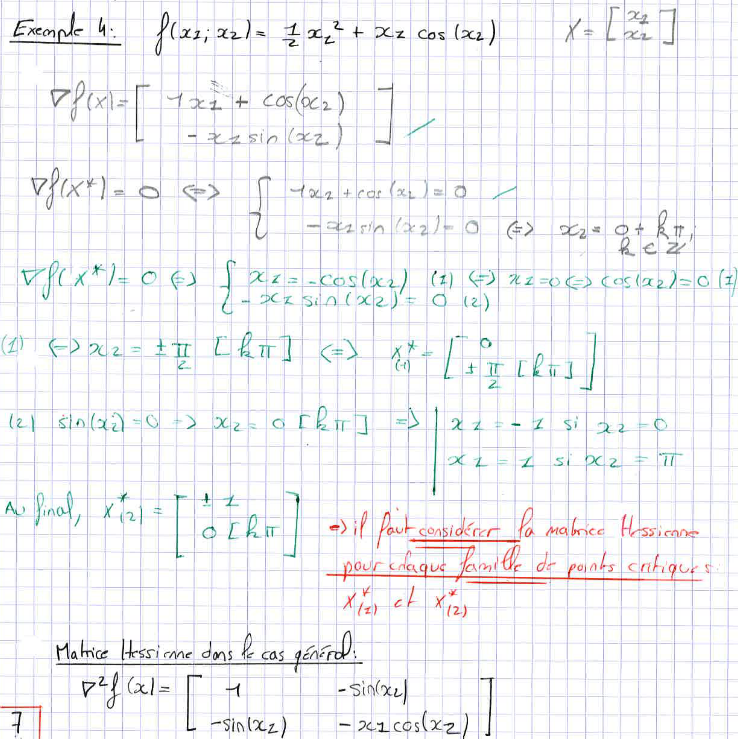 Exemple 4: f(x1; x2) = 1/2 x1² + x1 cos(x2) X = [x1 x2]
∇f(x) = [1x1 + cos(x2)
- x1 sin(x2)]
∇f(X*) = 0 <=> { 1x1 + cos(x2) = 0
- x1 sin(x2) = 0 <=> x2 = 0 + kπ, k ∈ Z
∇f(X*) = 0 <=> { x1 = -cos(x2) (1) <=> x1 = 0 <=> cos(x2) = 0 (1)
- x1 sin(x2) = 0 (2)
(1) <=> x2 = ± π/2 [kπ] <=> X*(1) = [0 ± π/2 [kπ]]
(2) sin(x2) = 0 -> x2 = 0 [kπ] => | x1 = -1 si x2 = 0
x1 = 1 si x2 = π
Au final, X*(2) = [± 1
0 [kπ]
=> il faut considérer la matrice Hessienne
pour chaque famille de points critiques
X*(1) et X*(2)
Matrice Hessienne dans le cas général:
∇²f(x) = [1 -sin(x2)
-sin(x2) -x1 cos(x2)]
7